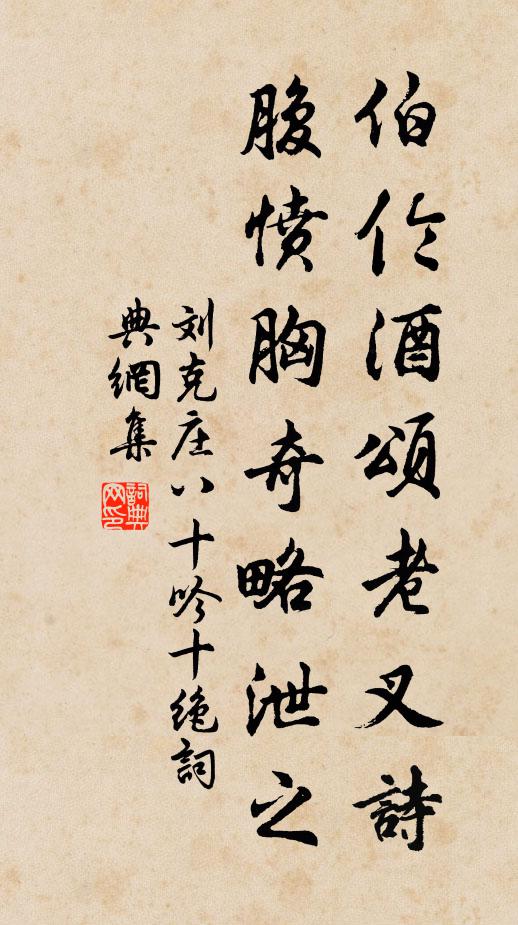 伯伦酒頌老叉詩
腹憤胸奇略泄之
刘克庄八十吟十绝詞
典網集
詞典
网印